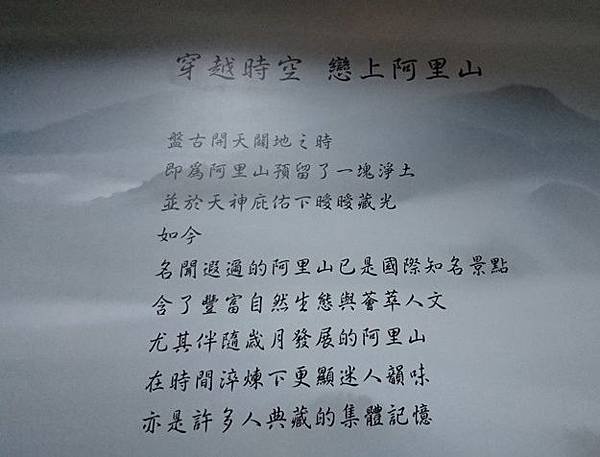 穿越時空 戀上阿里山
盤古開天闢地之時
即為阿里山預留了一塊淨土
並於天神庇佑下曖曖藏光
如今
名聞遐邇的阿里山已是國際知名景點
含了豐富自然生態與薈萃人文
尤其伴隨歲月發展的阿里山
在時間淬煉下更顯迷人韻味
亦是許多人典藏的集體記憶